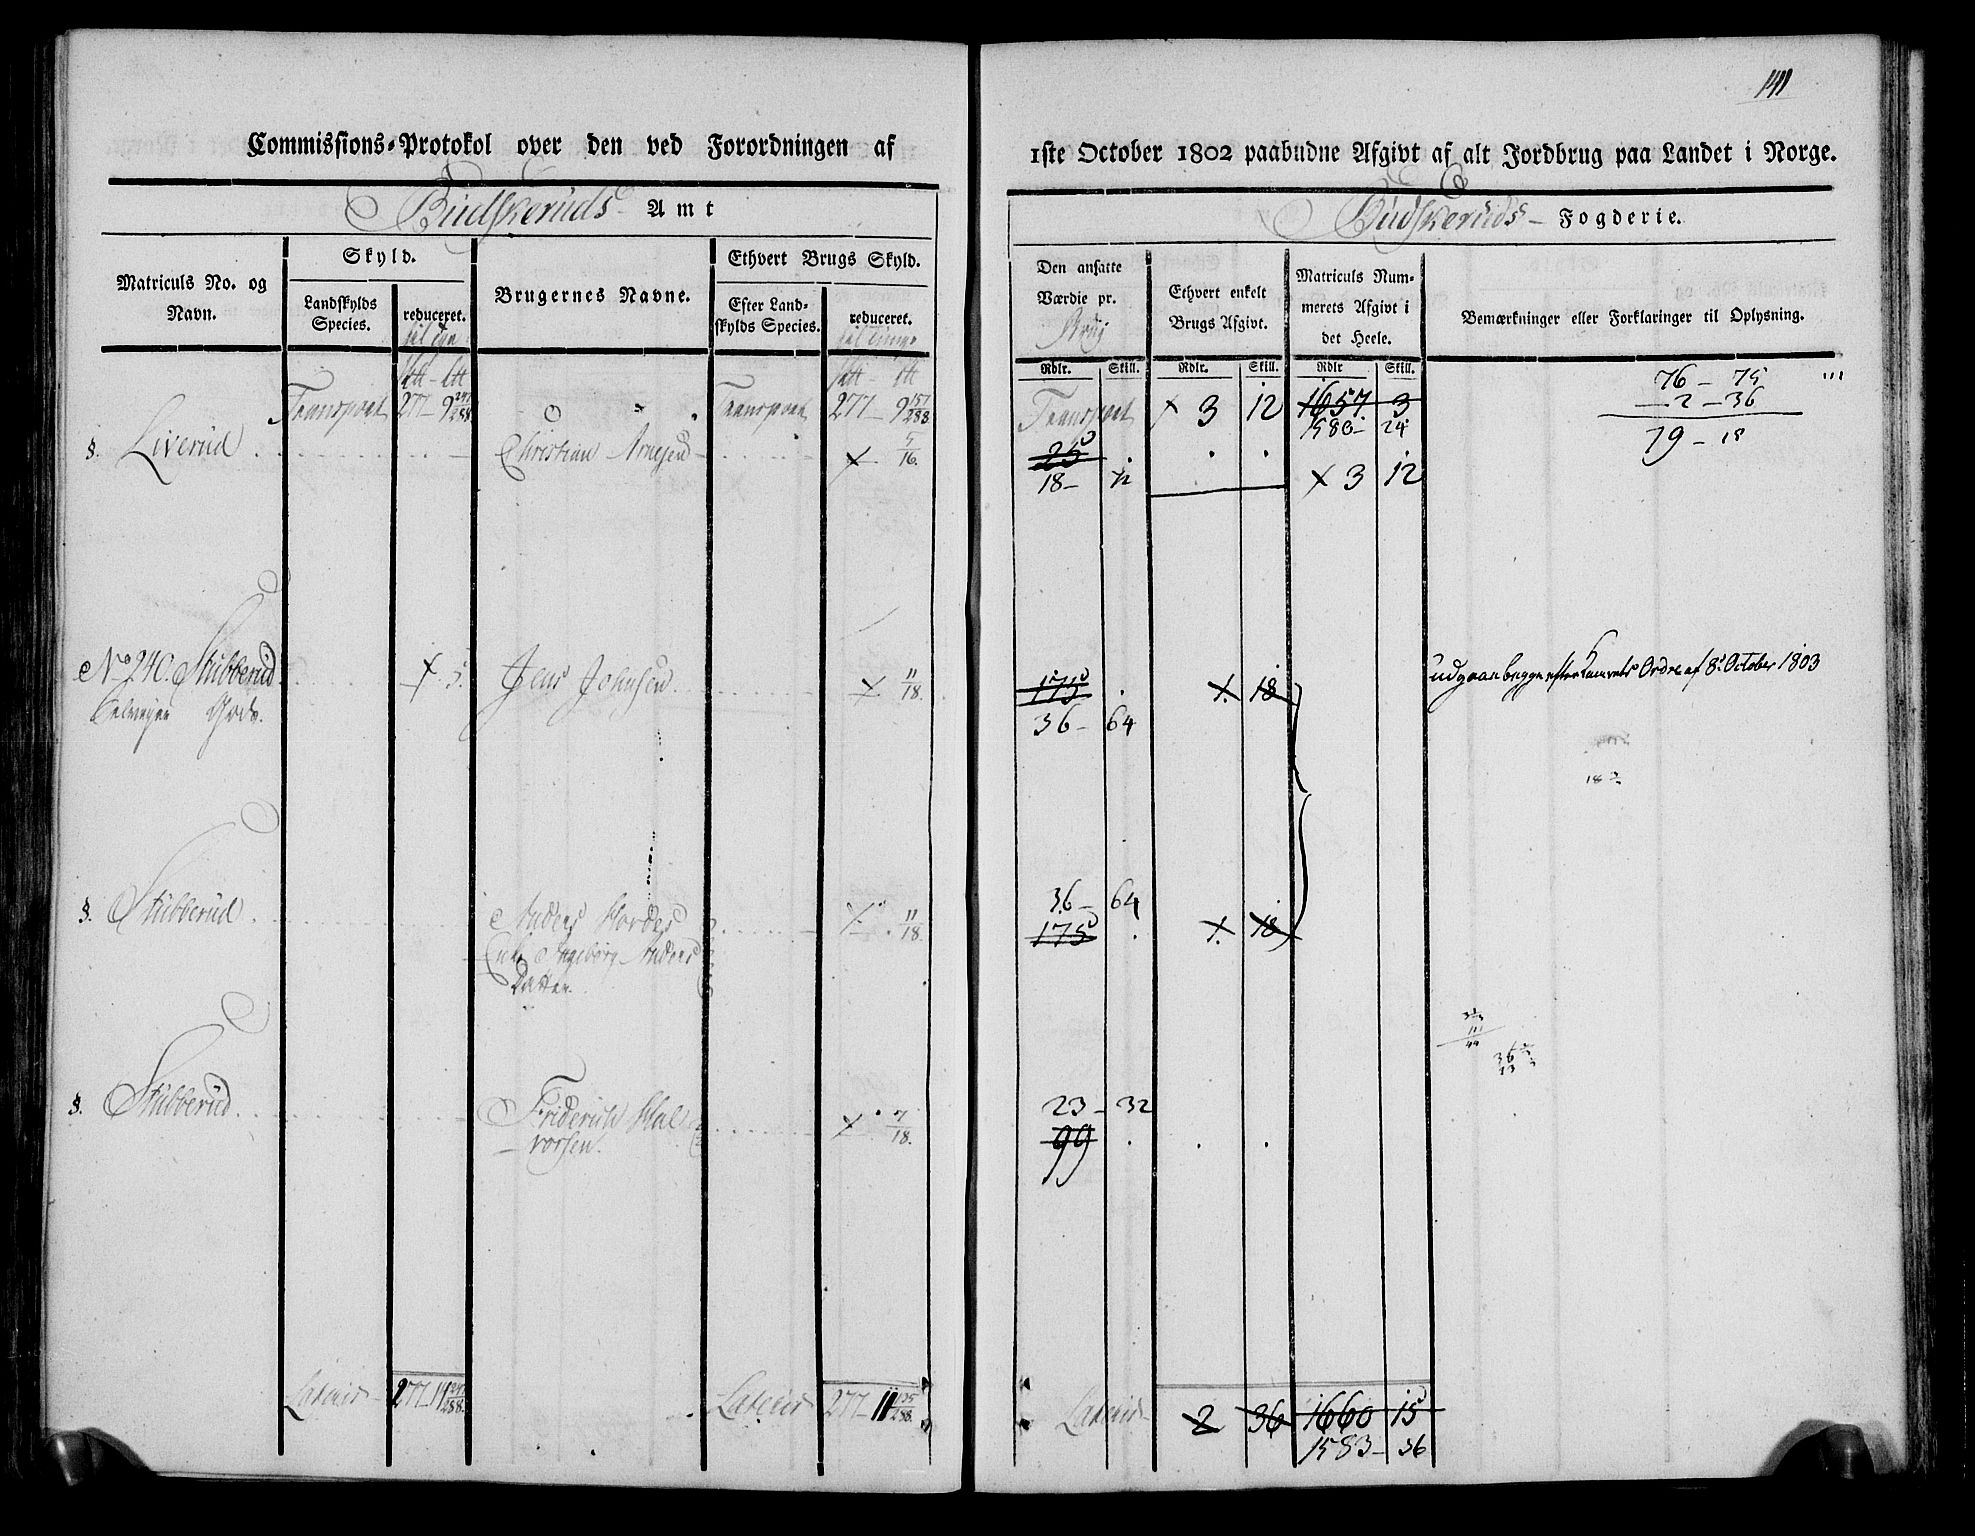 141
Commissions-Protokol over den ved Forordningen af
1ste October 1802 paabudne Afgivt af alt Jordbrug paa Landet i Norge.
Budskeruds Amt
Budskeruds Fogderie.
Matriculs No. og Navn.
Skyld.
Landskylds Species.
reduceret.
Brugernes Navne.
Ethvert Brugs Skyld.
Efter Landskylds Species.
reduceret.
Den ansatte Værdie pr.
Ethvert enkelt Brugs Afgivt.
Matriculs Nummerets Afgivt i det Heele.
Bemærkninger eller Forklaringer til Oplysning.
Rdlr. Skill. Rdlr. Skill. Rdlr Skill.
Transport 277 - 9 Transport 277 - 9 157/288
Transport 3 12 1657 3
1580 - 24
76 - 75
2 - 36
79 - 18
§. Liverud Christian Arnesen 5/16.
25
18 - 72 3 12
No 240. Stubberud 5. Jens Johnsen 11/18.
Gods.
175 1. 18
36 - 64
udgaar begge efter Kamrets Ordre af 8. October 1803
§. Stubberud Anders 11/18.
Ingeborg Anders
Datter.
36 - 64
175 1. 18
§. Stubberud Friderich Halvorsen. 7/18.
23 - 32
99
Lateris 277 - 11 Lateris 277 - 11 135/288.
Lateris 2 36 1660 15
1583 - 36